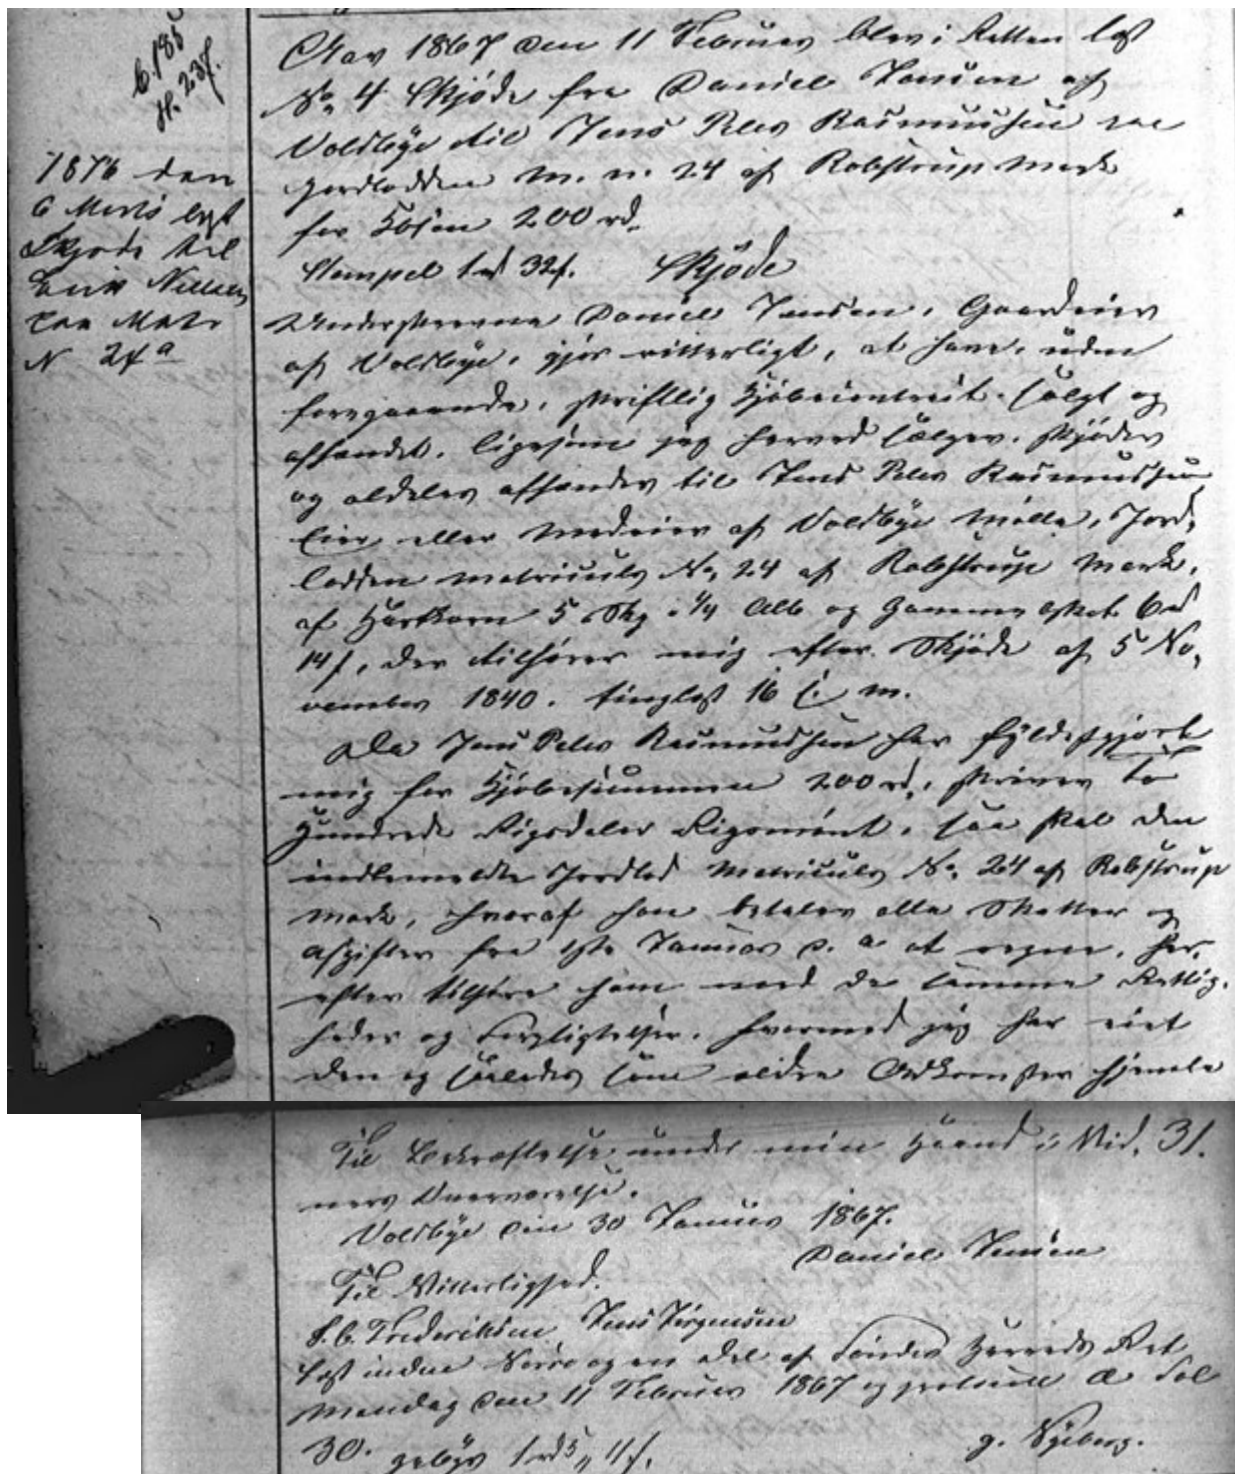 C. 185
H. 237.
1876 den
6 Marts lyst
Skjøde til
Erik Nielsen
paa Matr
N 24a
Aar 1867 den 11 Februar blev i Retten læst
No. 4 Skjøde fra Daniel Jensen af
Voldbÿe til Jens Peter Rasmussen paa
Jordlodden M. n. 24 af Robstrup Mark
for Kbsum 200 rd.
Stempel 1 rd 32 s. Skjøde
Underskrevne Daniel Jensen, Gaardeier
af Voldbÿe, gjør vitterligt, at have, uden
foregaaende, skriftlig Kjøbecontract, solgt og
afhændet, ligesom jeg herved sælger, skjøder
og aldeles afhænder til Jens Peter Rasmussen
Eier eller Medeier af Voldbÿe Mølle, Jord,
lodden matriculs No. 24 af Robstrup Mark,
af Hartkorn 5 Skp 1/4 Alb og Gammelskat 6 rd
14 s, der tilhører mig efter Skjøde af 5 No,
vember 1840. tinglæst 16 s. m.
Da Jens Peter Rasmussen har fÿldestgjort
mig for Kjøbesummen 200 rd, skriver To
Hundrede Rigsdaler Rigsmønt, saa skal den
indbemeldte Jordlod Matriculs No. 24 af Robstrup
Mark, hvoraf han betaler alle Skatter og
Afgifter fra 1ste Januar d. a. at regne, her,
efter tilhøre ham med de samme Rettig,
heder og Forpligtelser, hvormed jeg har eiet
den og saaledes som ældre Adkomster hjemle
Til Bekræftelse under min Haand i Vid, 31.
ners Overværelse.
Voldbÿe den 30 Januar 1867.
Daniel Jensen
Til Vitterlighed.
S. C. Frederiksen Jens Jørgensen
Læst inden Nørre og en Deel af Sønder Herreds Ret
Mandag den 11 Februar 1867 og protocol A Fol
30. gebÿr 1 rd 5 " 11 s. g. Nÿeborg.